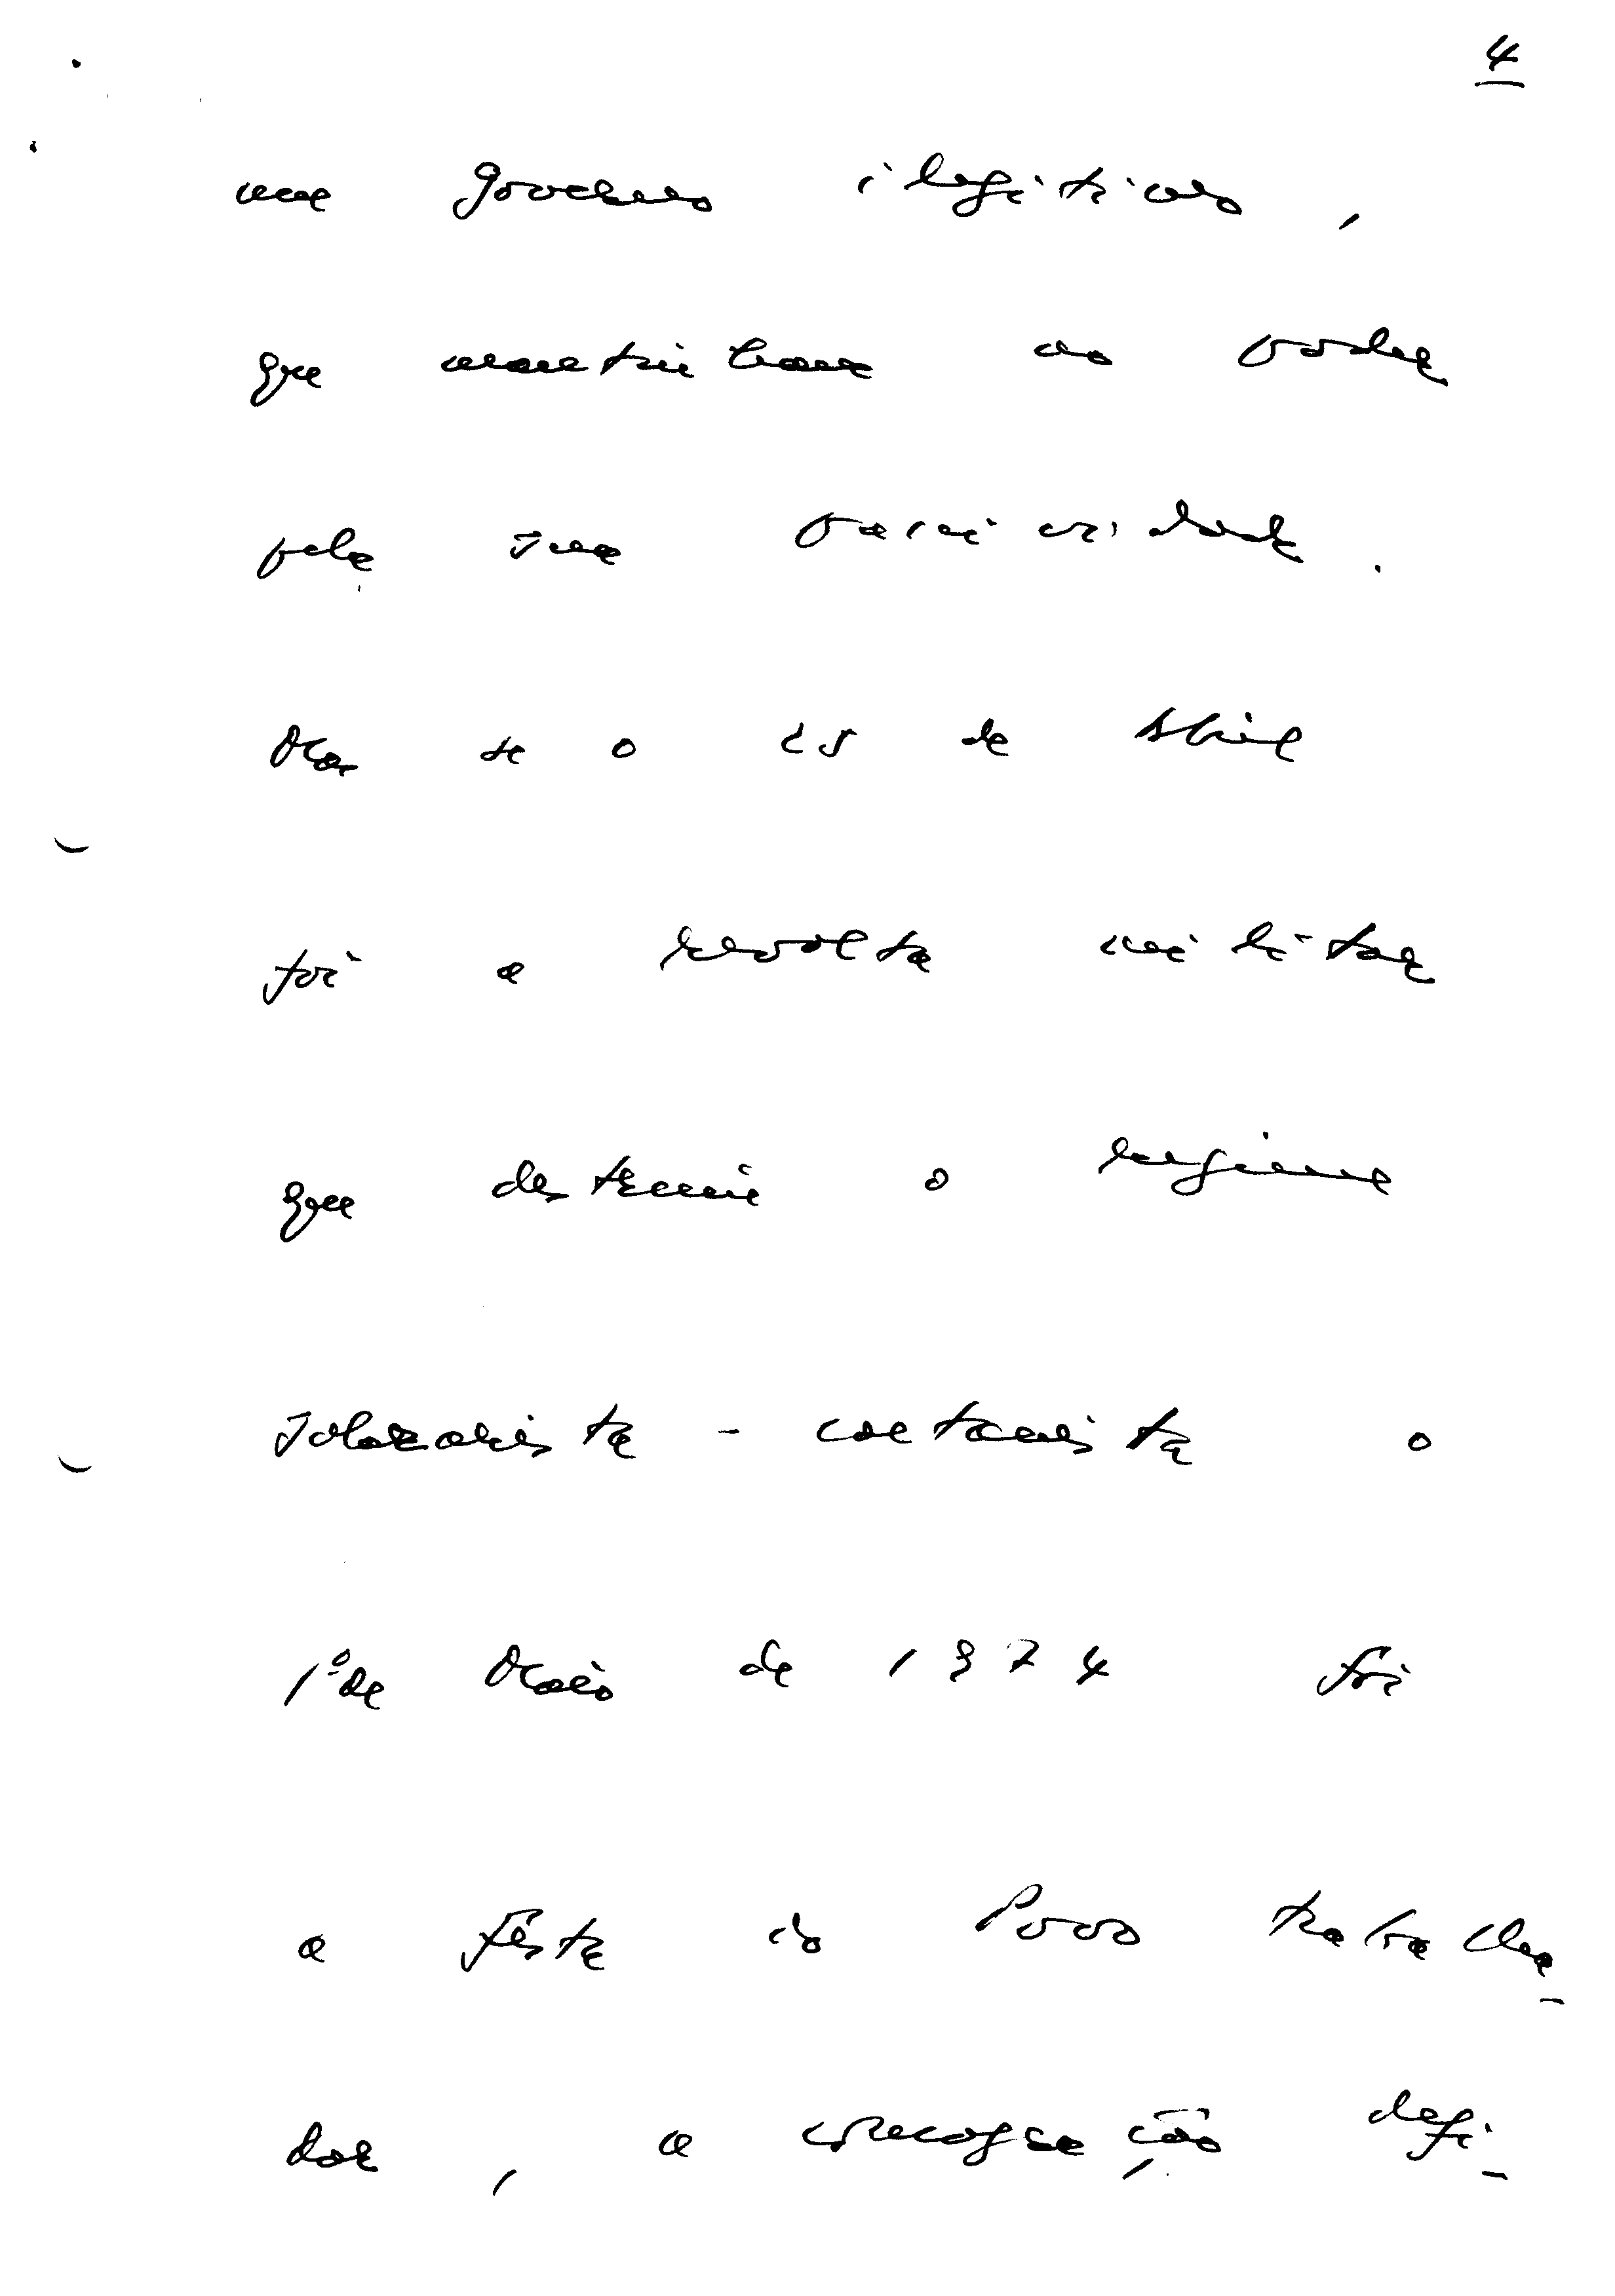 4
um governo ilegítimo,
que mantinham no poder
pela sua passividade.
Mas se o 25 de Abril
foi a revolta militar
que destruiu o regime
salazarista - caetanista o
1º de Maio de 1974 foi
a festa do Povo trabalha-
dor, a consagração defi-